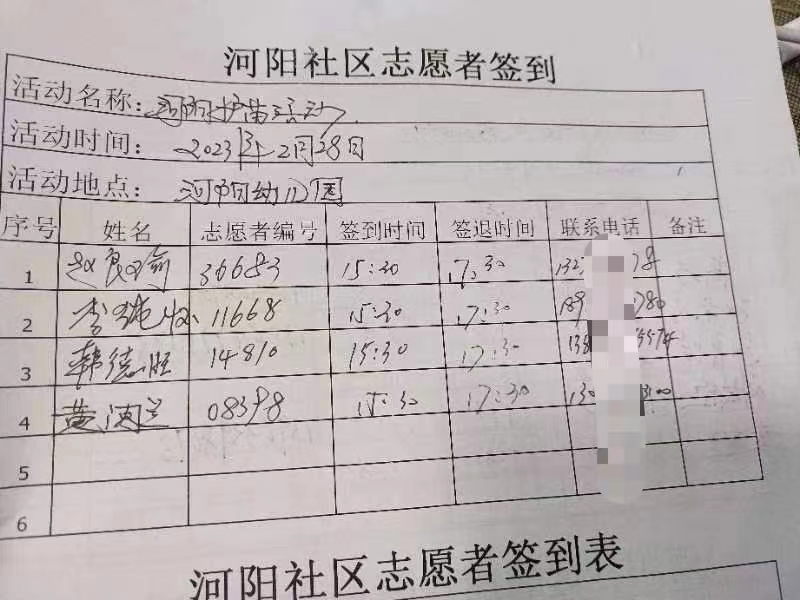 河阳社区志愿者签到
活动名称：河阳护苗活动
活动时间：2023年2月28日
活动地点：河阳幼儿园
序号 姓名 志愿者编号 签到时间 签退时间 联系电话 备注
1 赵良 36683 15:30 17:30 132 78
2 李 11668 15:30 17:30 189 780
3 韩德胜 14810 15:30 17:30 138 5574
4 黄兰 08398 15:30 17:30 130 3100
5
6
河阳社区志愿者签到表